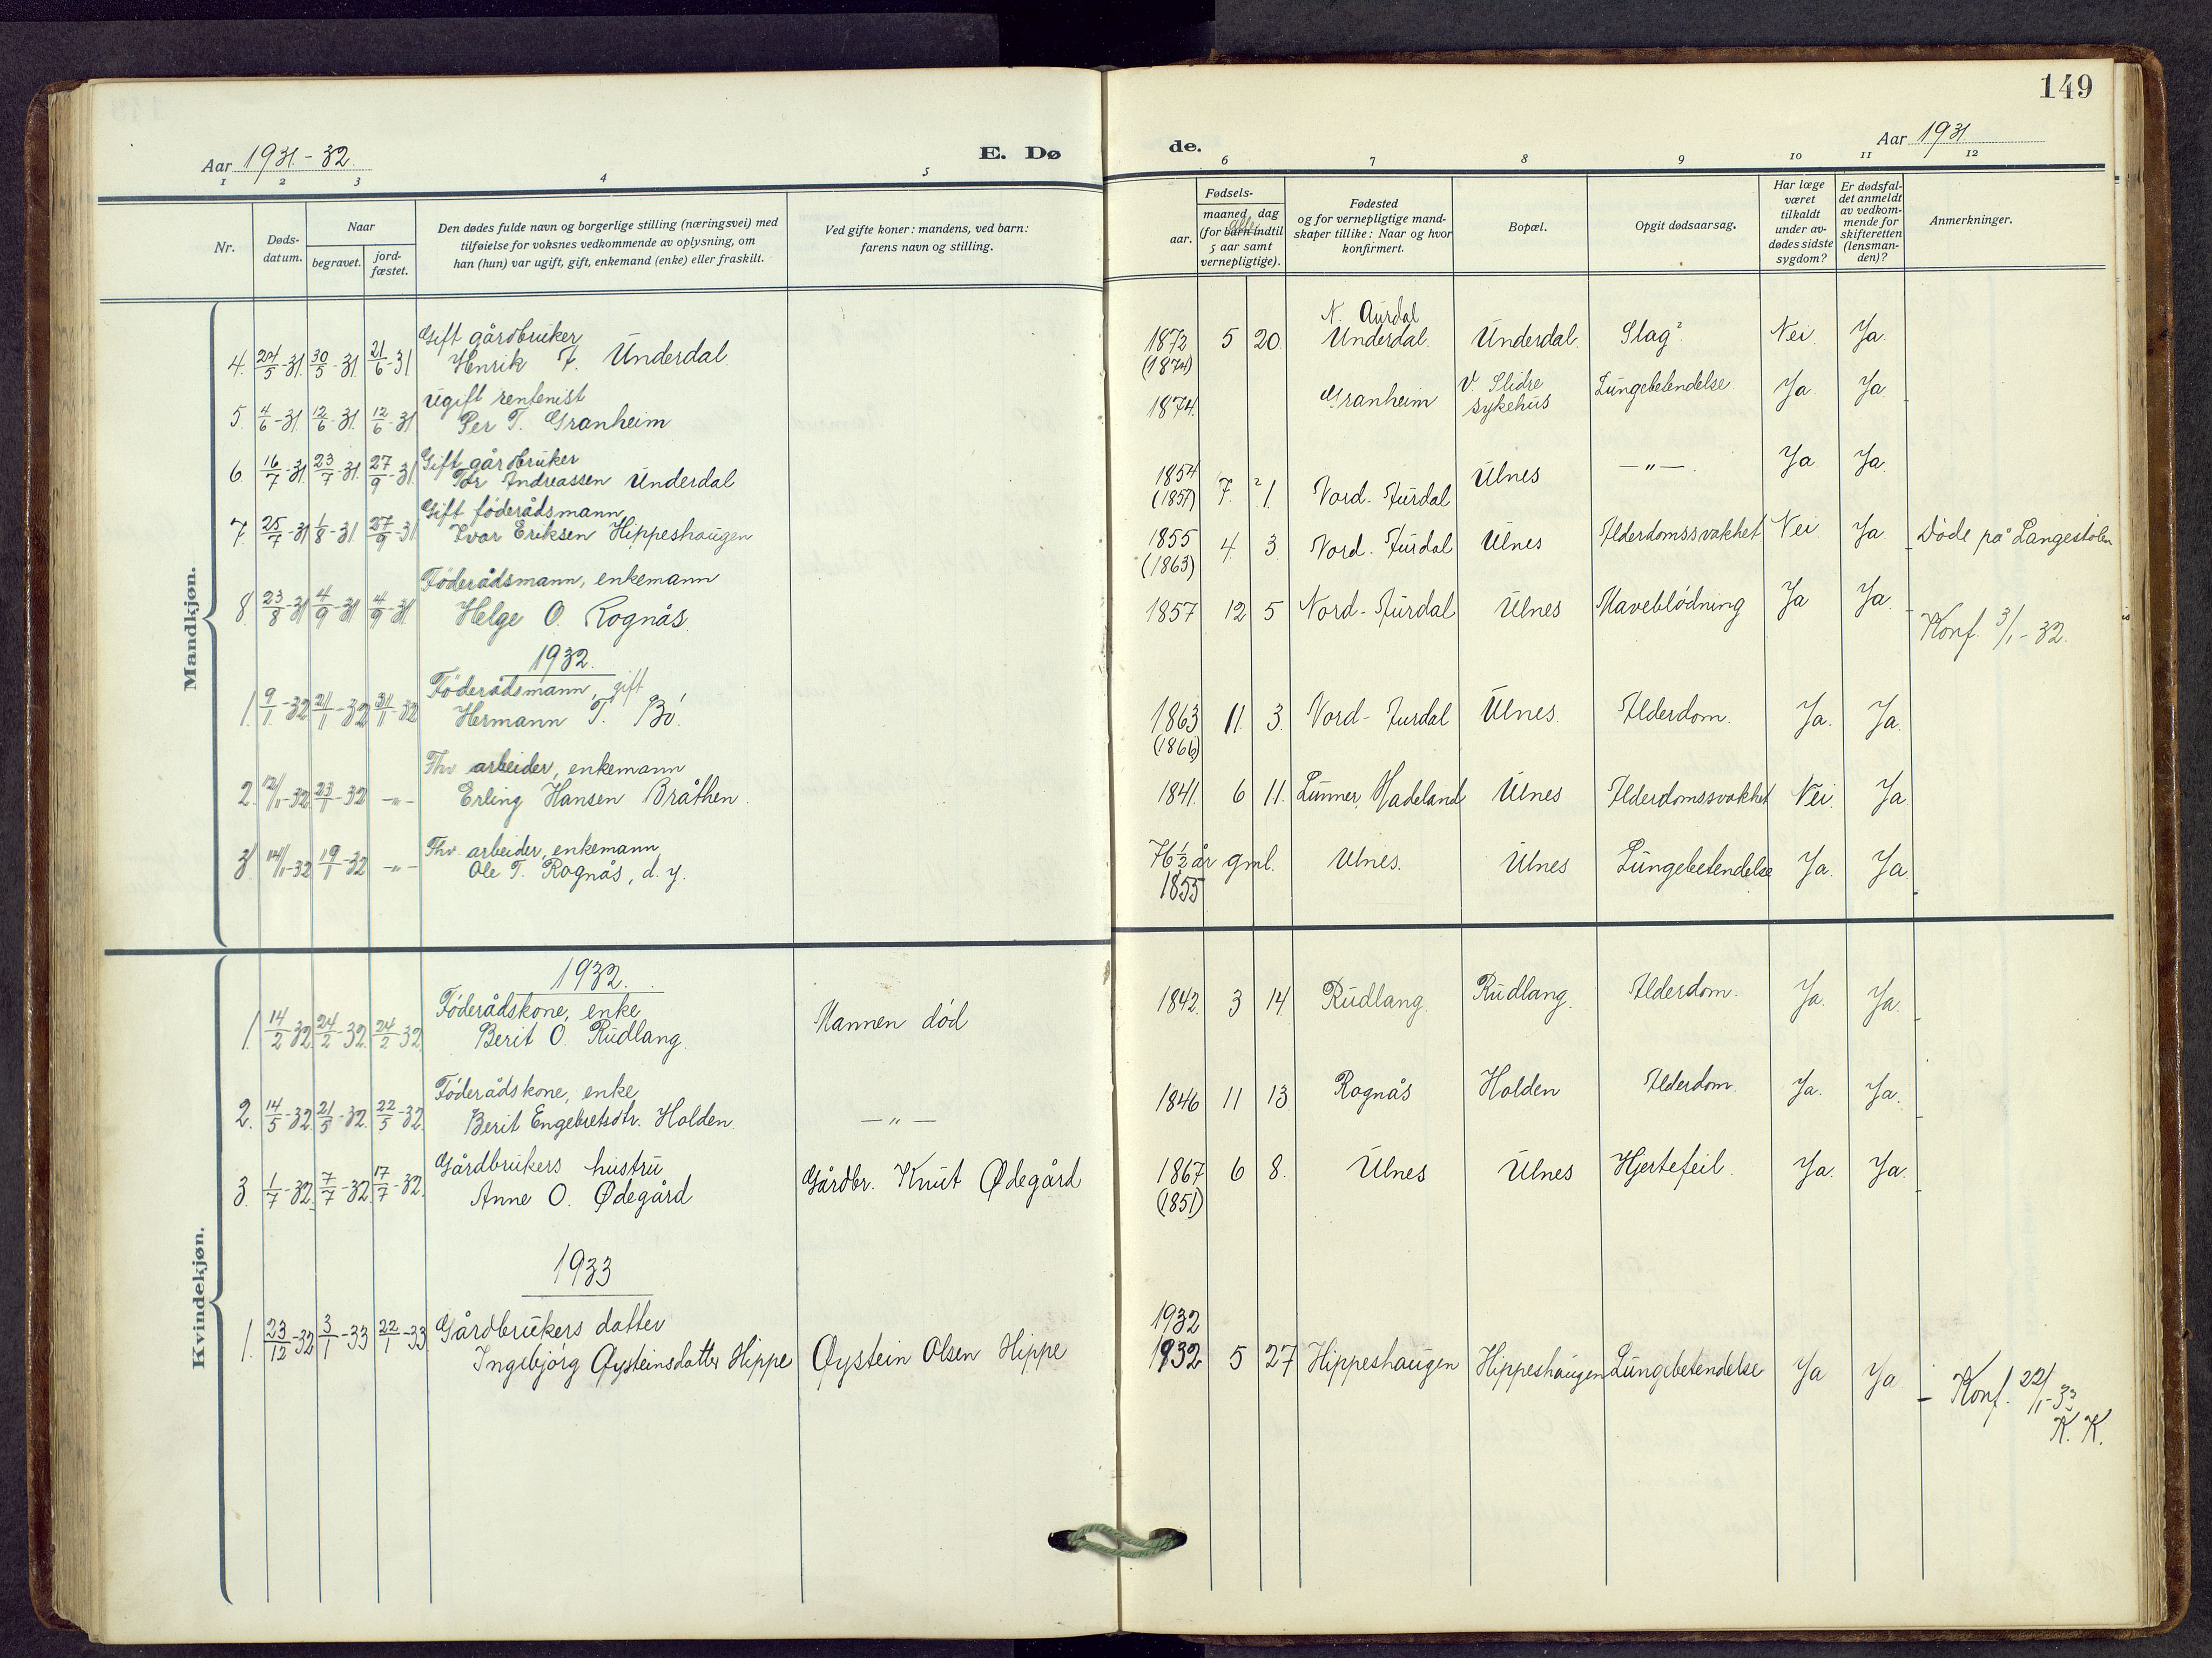 149
Aar 1931.-32.
E. Dø
de.
Aar 1931
1 2 3 4 5
6 7 8 9 10 11 12
Nr.
Døds-
datum.
Naar
begravet.
jord-
fæstet.
Den dødes fulde navn og borgerlige stilling (næringsvei) med
tilføielse for voksnes vedkommende av oplysning, om
han (hun) var ugift, gift, enkemand (enke) eller fraskilt.
Ved gifte koner: mandens, ved barn:
farens navn og stilling.
Fødsels-
aar.
maaned dag
(for barn indtil
5 aar samt
vernepligtige).
Fødested
og for vernepligtige mand-
skaper tillike: Naar og hvor
konfirmert.
Bopæl.
Opgit dødsaarsag.
Har læge
været
tilkaldt
under av-
dødes sidste
sygdom?
Er dødsfal-
det anmeldt
av vedkom-
mende for
skifteretten
(lensman-
den)?
Anmerkninger.
Mandkjøn.
Gift gårdbruker N. Aurdal
4. 24/5-31. 30/5-31. 21/6-31 Henrik T. Underdal 1872 5 20. Underdal. Underdal. Slag? Nei. Ja.
(1874)
Ugift rentenist V. Slidre
5. 4/6-31. 12/6-31. 12/6-31 Per T. Granheim 1874. Granheim sykehus Lungebetendelse Ja Ja.
Gift gårdbruker
6. 16/7-31. 23/7-31. 27/9-31. Tor Andreassen Underdal 1854 7. ?1. Nord-Aurdal Ulnes —"— Ja Ja.
(1857)
Gift føderådsmann
7. 25/7-31 1/8-31. 27/9-31. Ivar Eriksen Hippeshaugen 1855 4. 3. Nord-Aurdal Ulnes Alderdomssvakhet Nei. Ja. Døde på Langestølen
(1863)
Føderådsmann, enkemann
8. 23/8-31 4/9-31 4/9-31. Helge O. Rognås. 1857 12 5 Nord-Aurdal Ulnes Maveblødning Ja Ja. Konf. 3/1-32.
1932.
Føderådsmann, gift
1. 9/1-32. 21/1-32 31/1-32 Hermann T. Bø. 1863 11. 3. Nord-Aurdal Ulnes. Alderdom. Ja. Ja.
(1866)
Fhv. arbeider, enkemann
2. 12/1-32. 23/1-32 -"- Erling Hansen Bråthen. 1841. 6 11. Lunner, Hadeland Ulnes Alderdomssvakhet Nei. Ja.
Fhv. arbeider, enkemann
3. 14/1-32 19/1-32 -"- Ole T. Rognås, d. y. 76½ år gml. Ulnes. Ulnes Lungebetendelse Ja. Ja.
1855
Kvindekjøn.
1932.
Føderådskone, enke
1. 14/2-32. 24/2-32. 24/2-32. Berit O. Rudlang. Mannen død 1842. 3 14. Rudlang. Rudlang. Alderdom. Ja. Ja.
Føderådskone, enke
2. 14/5-32. 21/5-32. 22/5-32. Berit Engebretsdtr. Holden. —"— 1846 11 13. Rognås Holden Alderdom. Ja. Ja.
Gårdbrukers hustru
3. 1/7-32. 7/7-32. 17/7-32. Anne O. Ødegård Gårdbr. Knut Ødegård 1867 6 8. Ulnes Ulnes Hjertefeil. Ja. Ja.
(1851)
1933
Gårdbrukers datter 1932
1. 23/12-32 3/1-33 22/1-33 Ingebjørg Øysteinsdatter Hippe Øystein Olsen Hippe 1932 5 27 Hippeshaugen Hippeshaugen Lungebetendelse Ja Ja Konf. 22/1-33
K. K.